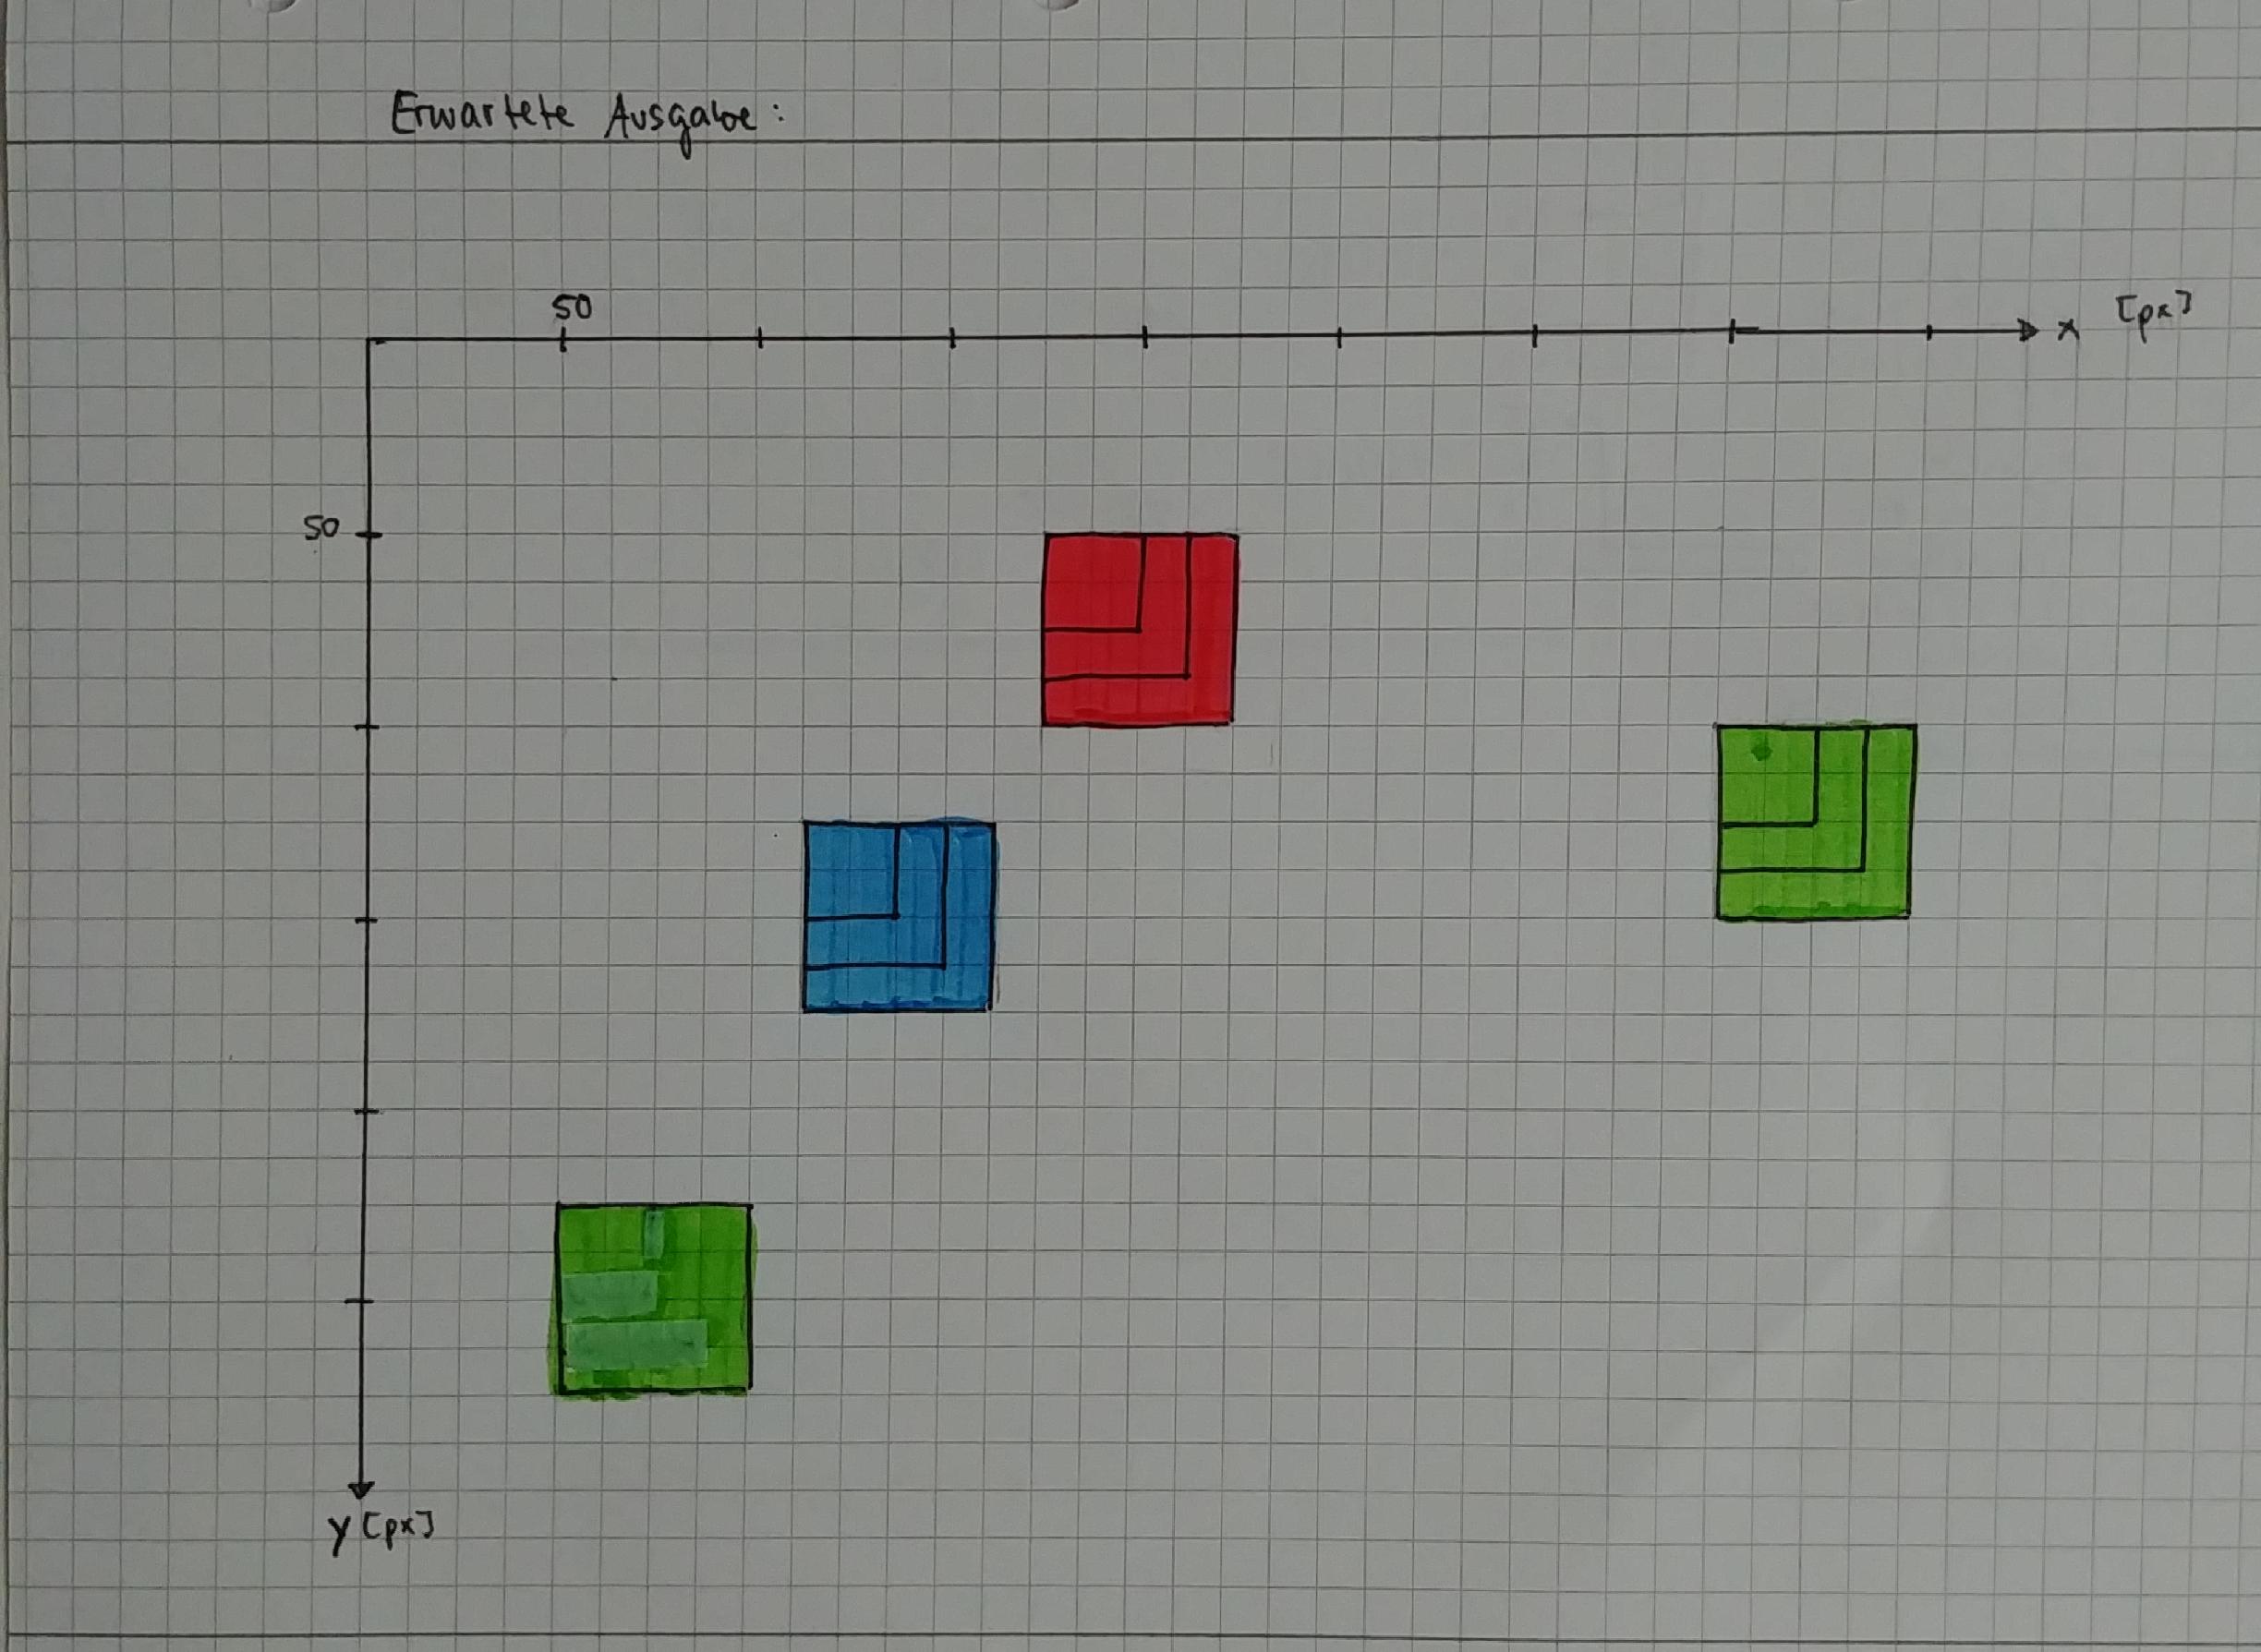 Erwartete Ausgabe:
50
x [px]
50
y [px]